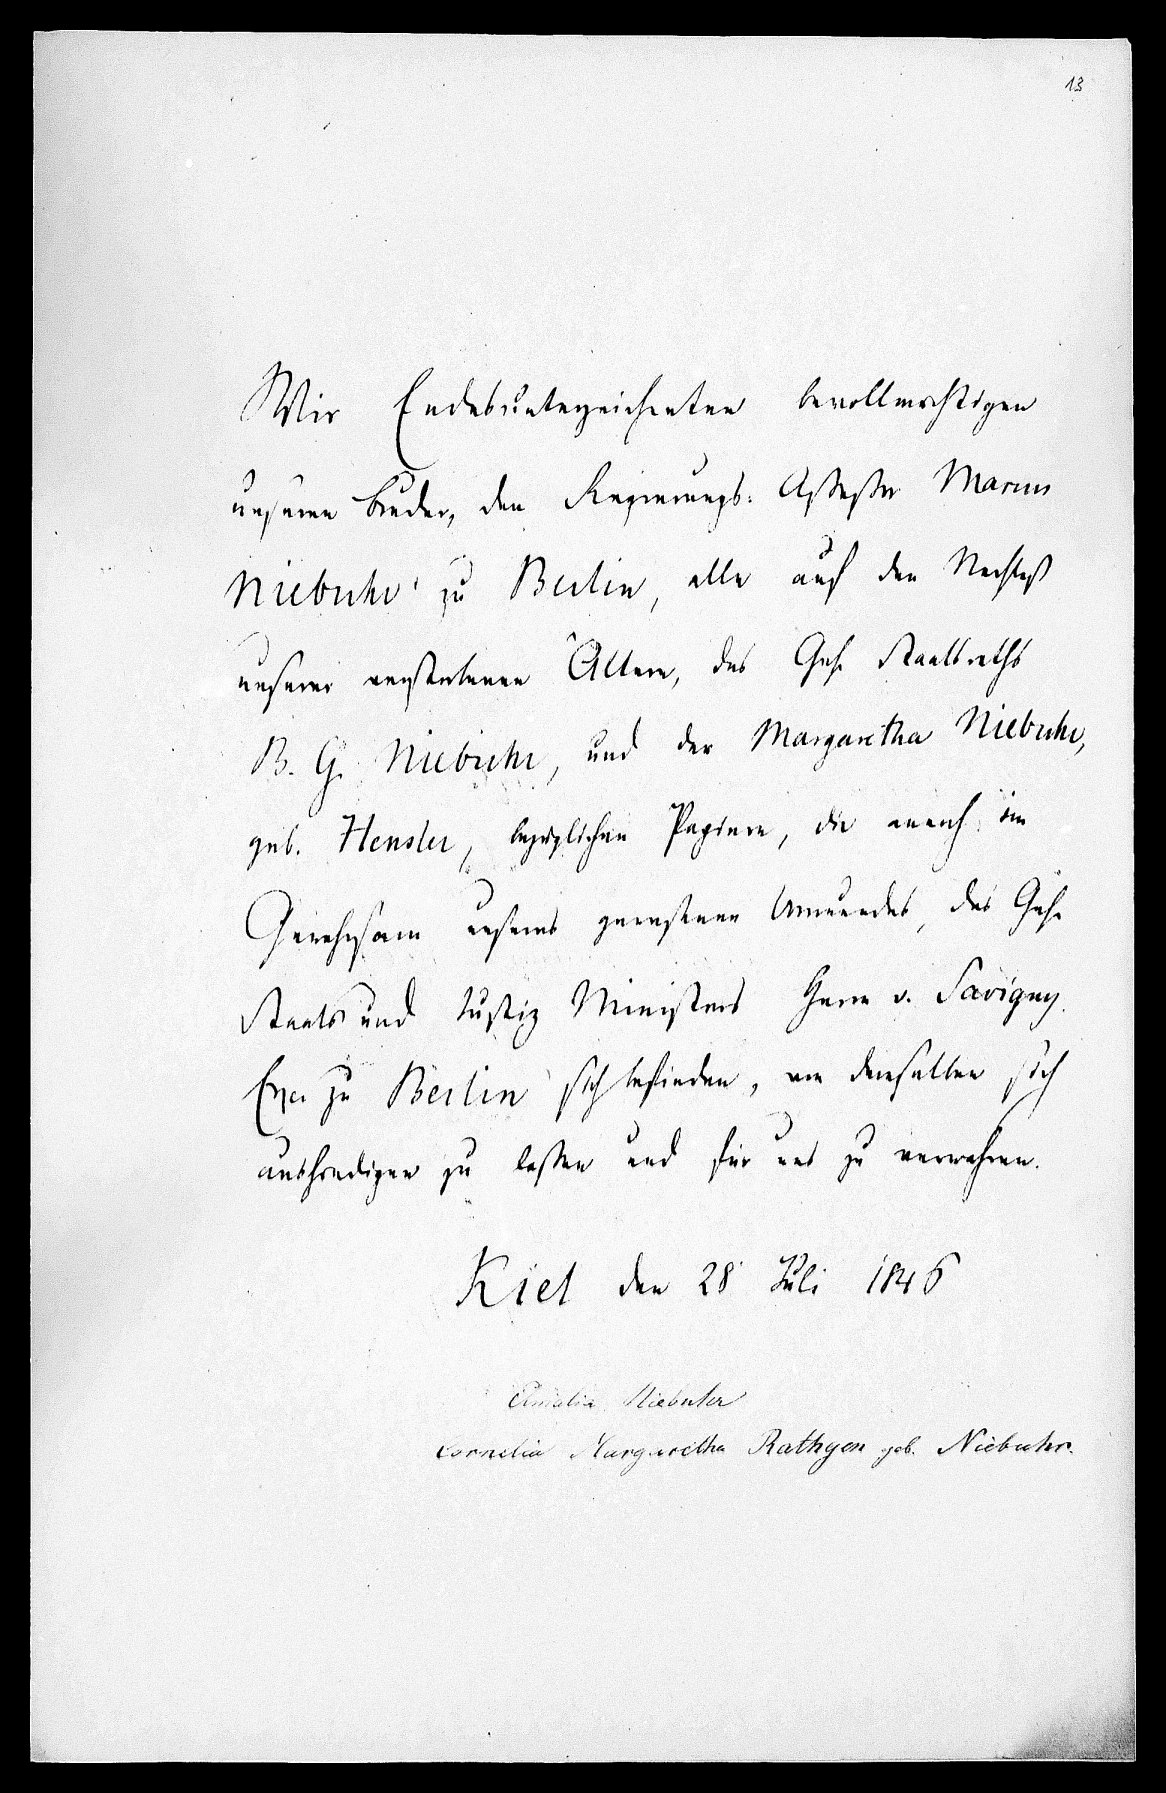 13
Wir Endesunterzeichneten bevollmächtigen
unseren Bruder, den Regierungs-Assessor Marcus
Niebuhr zu Berlin, alle auf den Nachlaß
unserer verstorbenen Ältern, des Geh. Staatsraths
B. G. Niebuhr, und der Margaretha Niebuhr,
geb. Hensler, bezüglichen Papiere, die annoch im
Gewahrsam unseres gewesenen Vormundes, des Geh.
Staats und Justiz Ministers Herrn v. Savigny
Exc. zu Berlin sich befinden, von demselben sich
aushändigen zu lassen und für uns zu verwahren.
Kiel den 28 Juli 1846
Amalia Niebuhr
Cornelia Margaretha Rathgen geb. Niebuhr.